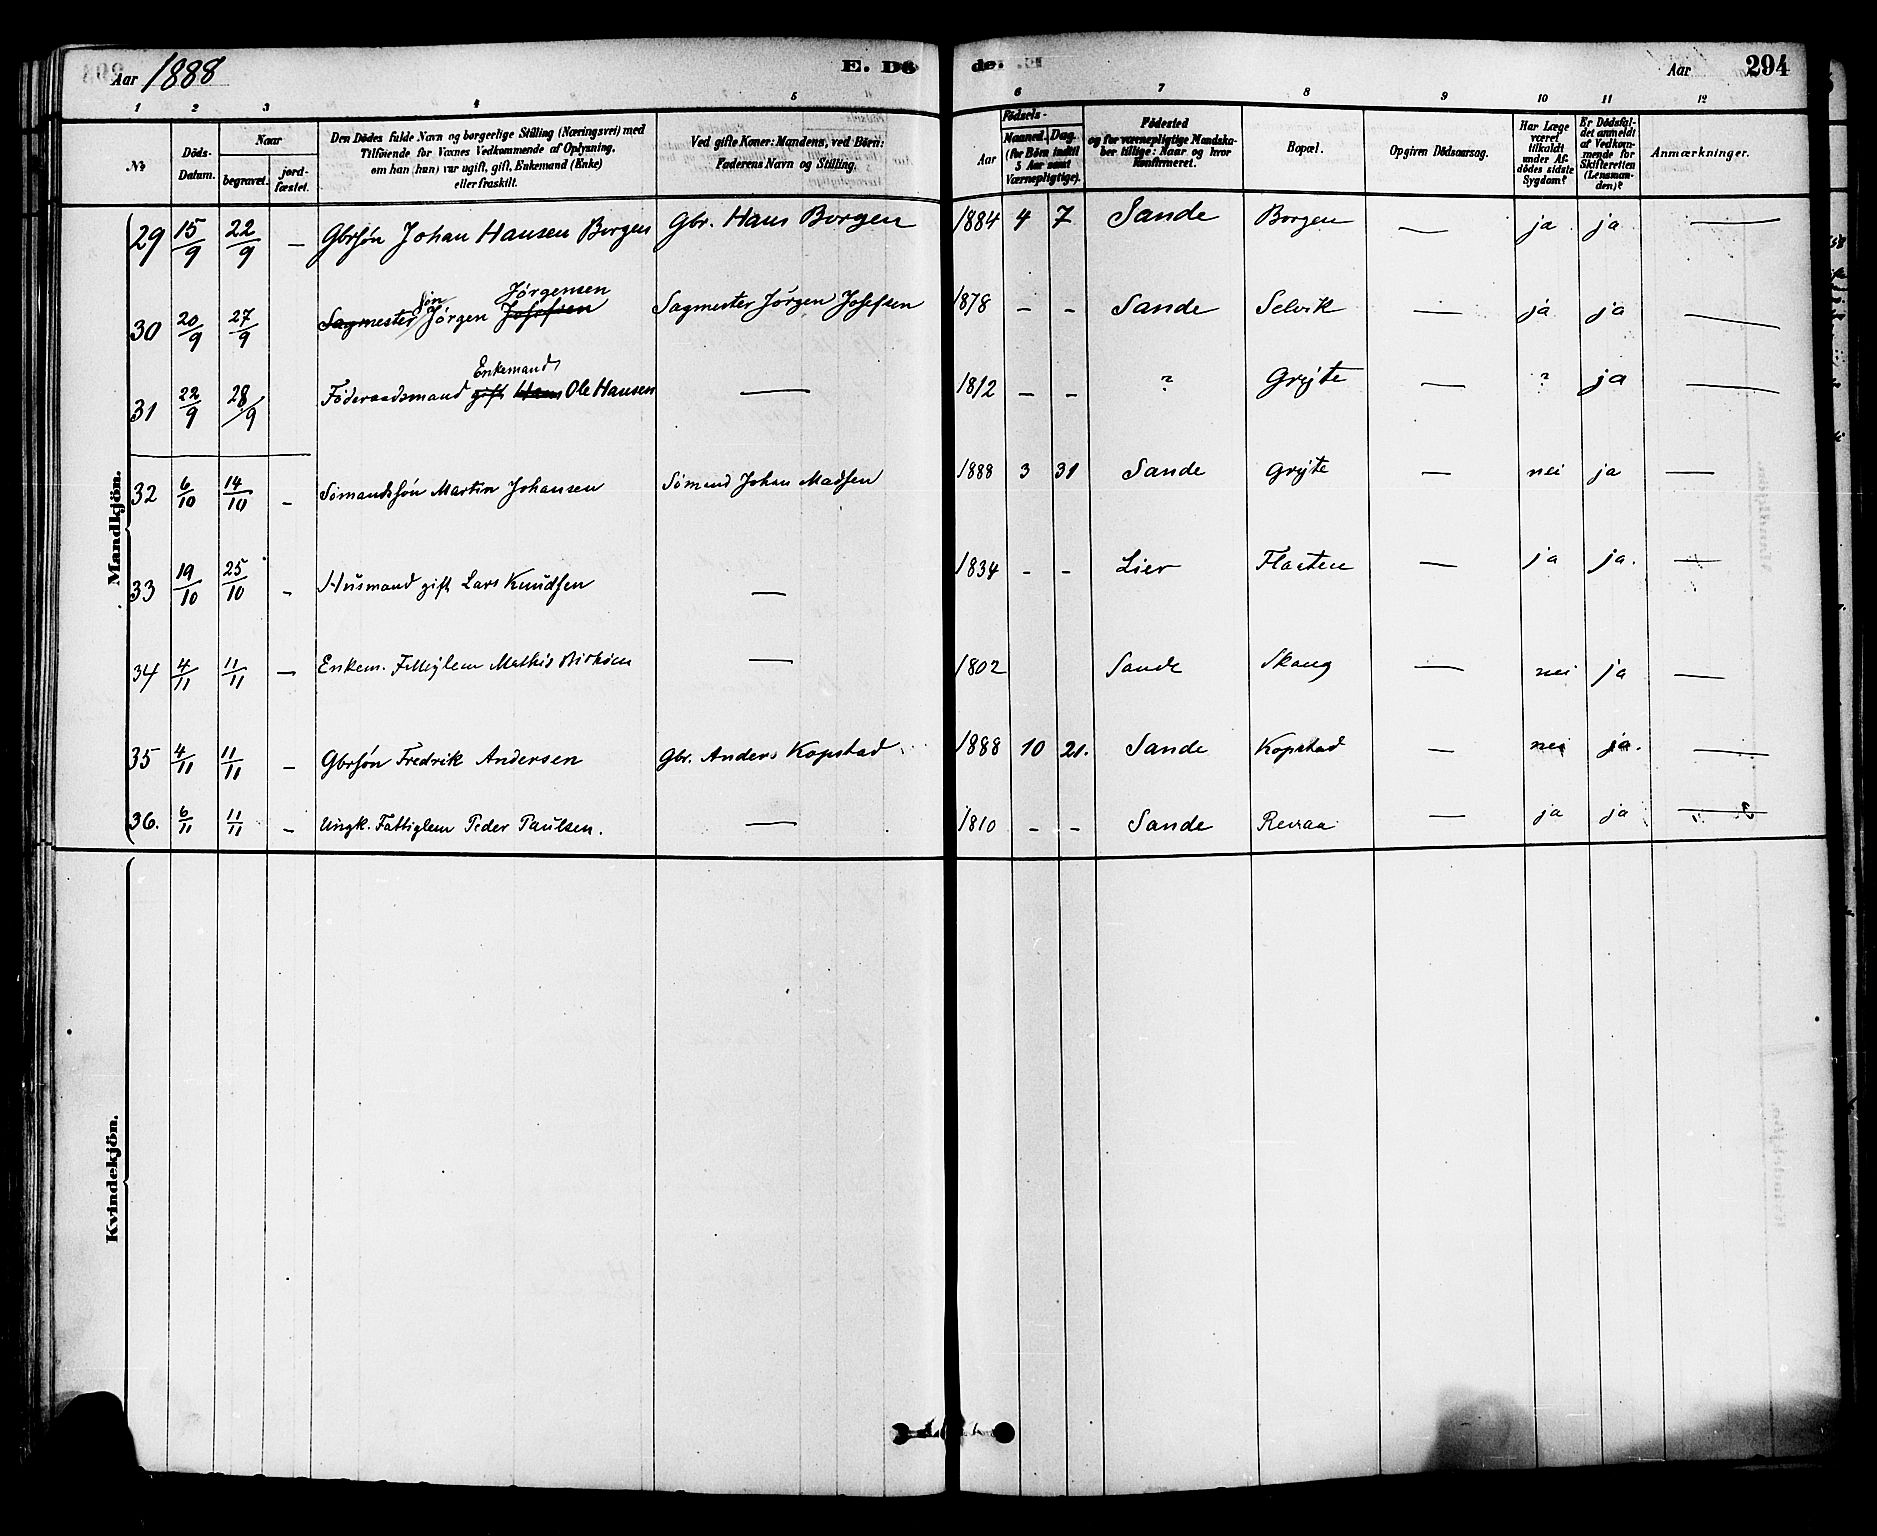 Aar 1888 E. Dö de. Aar 294
1 2 3 4 5 6 7 8 9 10 11 12
№ Döds-Datum. Naar begravet. jord-fæstet. Den Dödes fulde Navn og borgerlige Stilling (Næringsvei) med Tilföiende for Voxnes Vedkommende af Oplysning, om han (hun) var ugift, gift, Enkemand (Enke) eller fraskilt. Ved gifte Koner: Mandens, ved Börn: Faderens Navn og Stilling. Födsels- Aar Maaned. Dag. (for Börn indtil 5 Aar samt Værnepligtige). Födested og for værnepligtige Mandskaber tillige: Naar og hvor Konfirmeret. Bopæl. Opgiven Dödsaarsag. Har Læge været tilkaldt under Afdödes sidste Sygdom? Er Dödsfaldet anmeldt af Vedkommende for Skifteretten (Lensmanden)? Anmærkninger.
Mandkjön.
29 15/9 22/9 — Gbrsøn Johan Hansen Borgen Gbr. Hans Borgen 1884 4 7 Sande Borgen — ja ja —
søn Jørgensen
30 20/9 27/9 Sagmester Jørgen Josefsen Sagmester Jørgen Josefsen 1878 – – Sande Selvik — ja ja —
Enkemand
31 22/9 28/9 Föderaadsmand gift Hans Ole Hansen — 1812 – – ? Grøjte — ? ja —
32 6/10 14/10 – Sömandssøn Martin Johansen Sömand Johan Madsen 1888 3 31 Sande Grøjte — nei ja —
33 19/10 25/10 – Husmand gift Lars Knudsen — 1834 – – Lier Flaaten — ja ja. —
34 4/11 11/11 — Enkem. Fattiglem Mathis — 1802 Sande Skaug — nei ja —
35 4/11 11/11 – Gbrsøn Fredrik Andersen Gbr. Anders Kopstad 1888 10 21. Sande Kopstad — nei ja. —
36. 6/11 11/11 – Ungk. Fattiglem Peder Paulsen. — 1810 – – Sande Revaa — ja ja —
Kvindekjön.